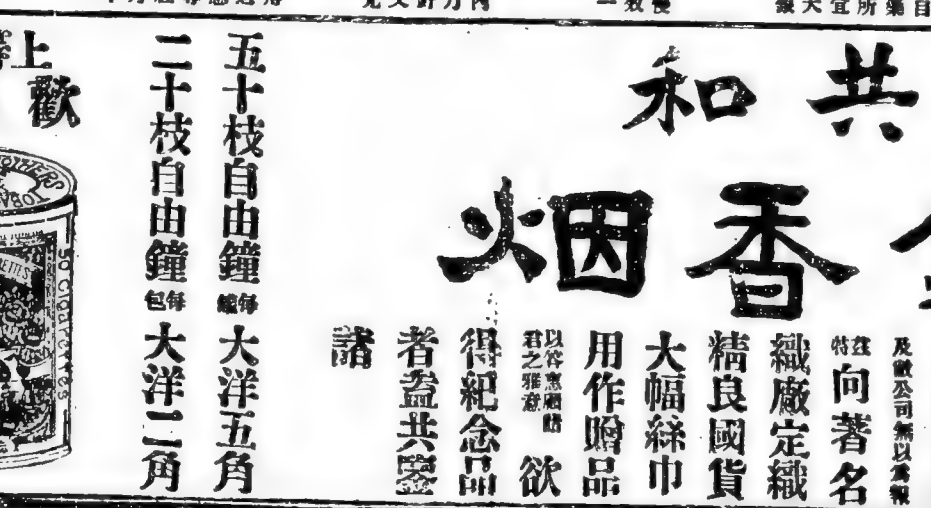 共和
香烟
及敝公司無以為報
茲特向著名
織廠定織
精良國貨
大幅絲巾
用作贈品
以答惠顧諸君之雅意 欲
得紀念品
者盍共鑒
諸
五十枝自由鐘每罐大洋五角
二十枝自由鐘每包大洋二角
上等
歡
50 CIGARETTES